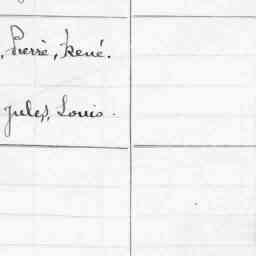 , Pierre, René.
Jules, Louis.